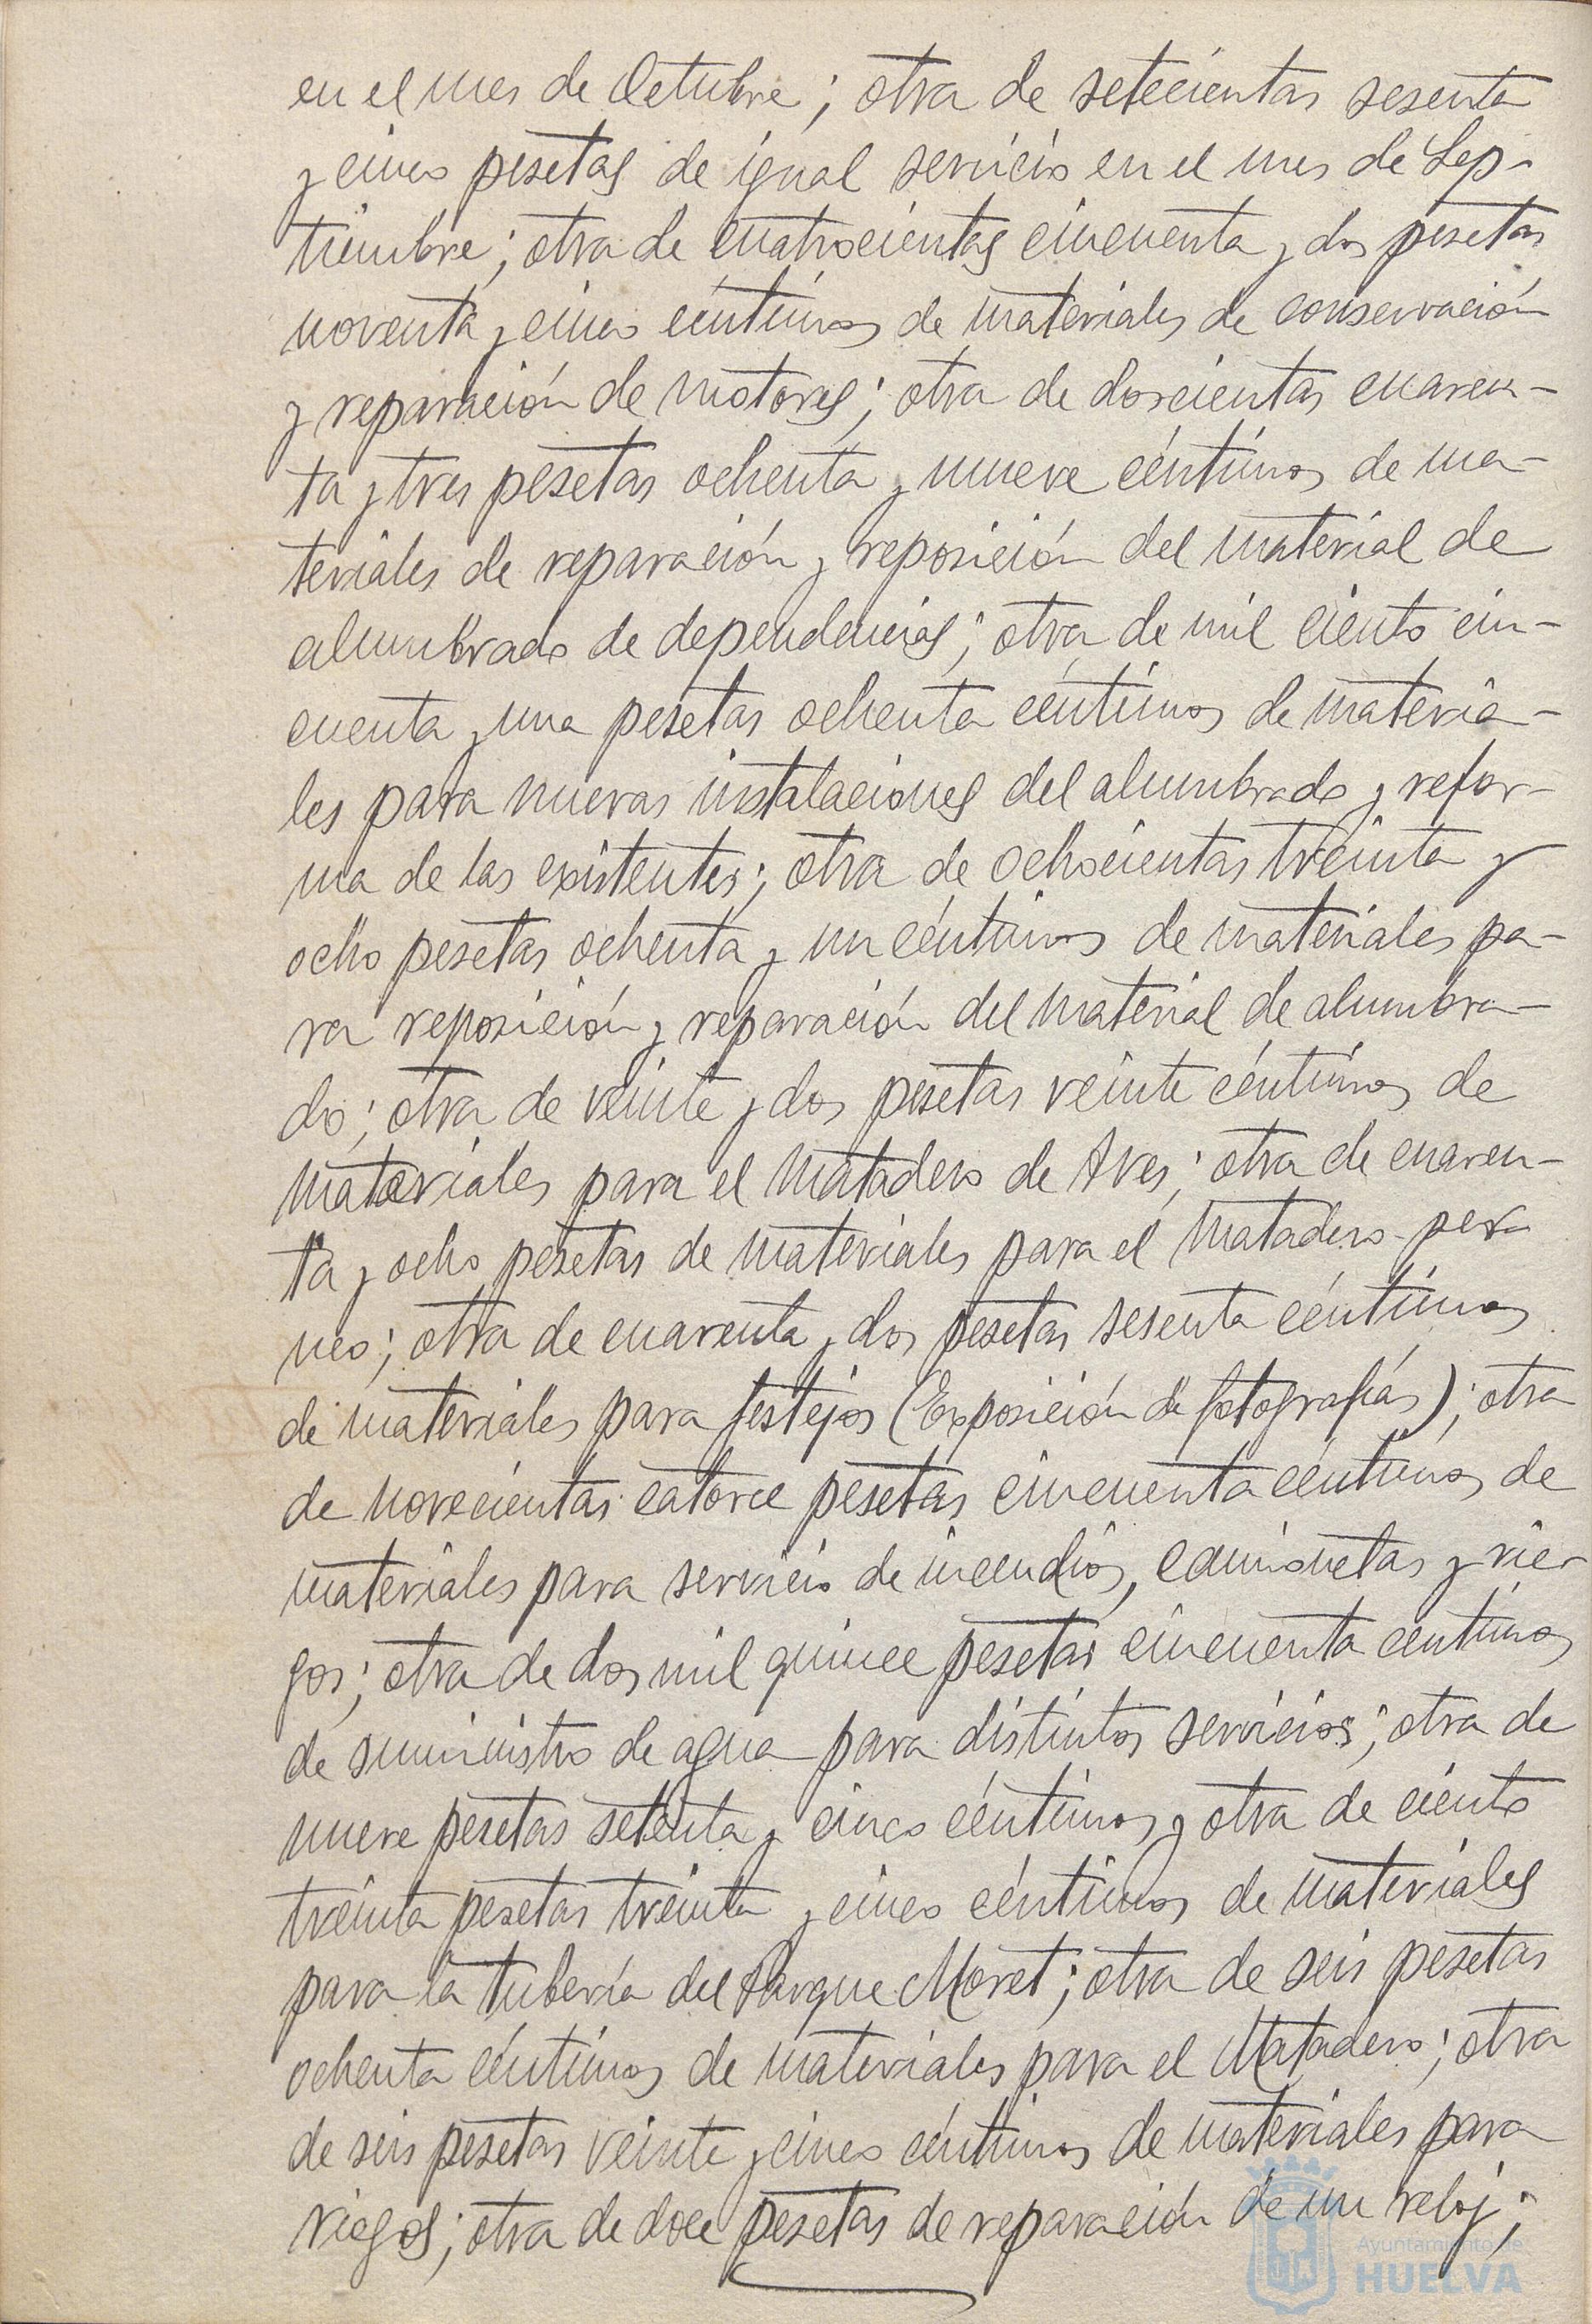 en el mes de Octubre; otra de setecientas sesenta
y cinco pesetas de igual servicio en el mes de Sep-
tiembre; otra de cuatrocientas cincuenta y dos pesetas
noventa y cinco céntimos de materiales de conservación
y reparación de motores; otra de doscientas cuaren-
ta y tres pesetas ochenta y nueve céntimos de ma-
teriales de reparación y reposición del material de
alumbrado de dependencias; otra de mil ciento cin-
cuenta y una pesetas ochenta céntimos de materia-
les para nuevas instalaciones del alumbrado y refor-
ma de las existentes; otra de ochocientas treinta y
ocho pesetas ochenta y un céntimos de materiales pa-
ra reposición y reparación del material de alumbra-
do; otra de veinte y dos pesetas veinte céntimos de
materiales para el Matadero de Aves; otra de cuaren-
ta y ocho pesetas de materiales para el Matadero pera
neo; otra de cuarenta y dos pesetas sesenta céntimos
de materiales para festejos (Exposición de fotografías); otra
de novecientas catorce pesetas cincuenta céntimos de
materiales para servicio de incendios, camionetas y rie-
gos; otra de dos mil quince pesetas cincuenta céntimos
de suministro de agua para distintos servicios; otra de
nueve pesetas setenta y cinco céntimos y otra de ciento
treinta pesetas treinta y cinco céntimos de materiales
para la tubería del Parque Moret; otra de seis pesetas
ochenta céntimos de materiales para el Matadero; otra
de seis pesetas veinte y cinco céntimos de materiales para
riegos; otra de doce pesetas de reparación de un reloj;
Ayuntamiento de
HUELVA